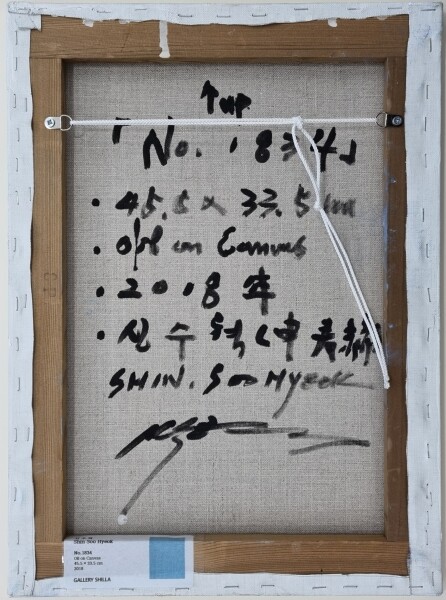 ↑up
「No. 1834」
• 45.5 x 33.5 cm
• oil on Canvas
• 2018 年
• 신수혁 (申
SHIN. SOO HYEOK
Shin Soo Hyeok
No. 1834
Oil on Canvas
45.5 x 33.5 cm
2018
GALLERY SHILLA